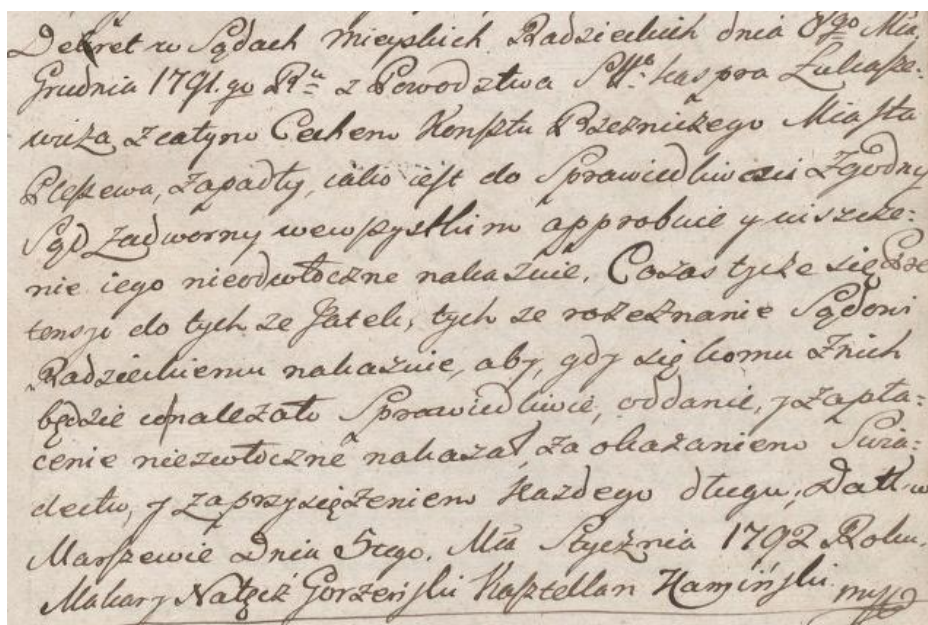 Dekret w Sądach Mieyskich Radzieckich dnia 8go Mia.
Grudnia 1791.go Ru z Powodztwa Sław. Kaspra Łukasze:
wicza z całym Cechem Konsztu Rzeźniczego Miasta
Pleszewa, zapadły, iako iest do Sprawiedliwości Zgodny
Sąd Zadworny wewszystkim approbuie y uiszcze:
nie iego nieodwłoczne nakazuie. Co zas tycże się Pre
tensyi do tych ze Jatek, tych ze rozeznanie Sądowi
Radzieckiemu nakazuie, aby, gdy się komu z nich
będzie należało Sprawiedliwie, oddanie, y zapła:
cenie niezwłoczne nakazał, za okazaniem Swia:
dectw, y zaprzysiężeniem każdego długu; Datt w
Marszewie Dnia 5tego. Mca Stycznia 1792 Roku.
Makary Nałęcz Gorzeński Kasztellan Kamiński mpp